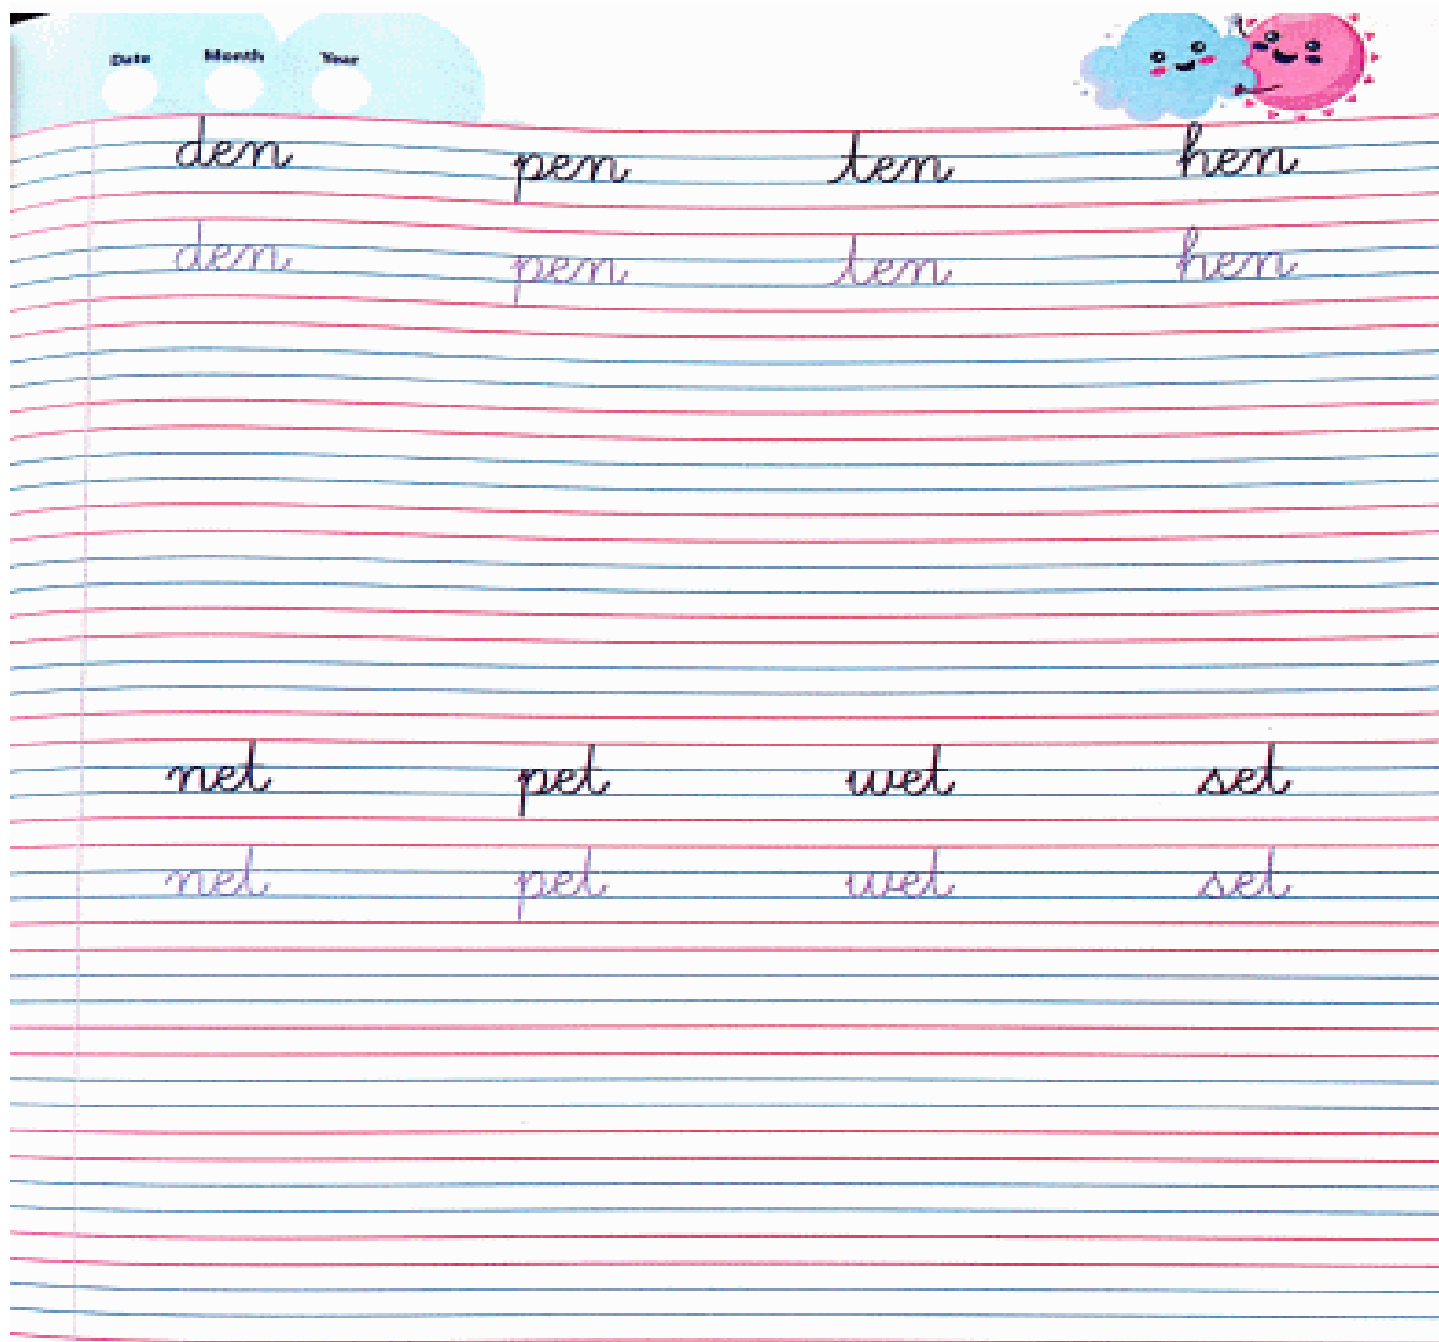 Date Month Year
den pen ten hen
den pen ten hen
net pet wet set
net pet wet set